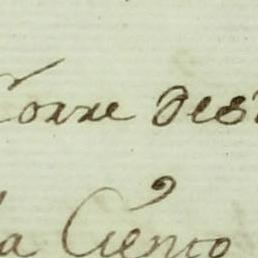 Corre des
la Ciento